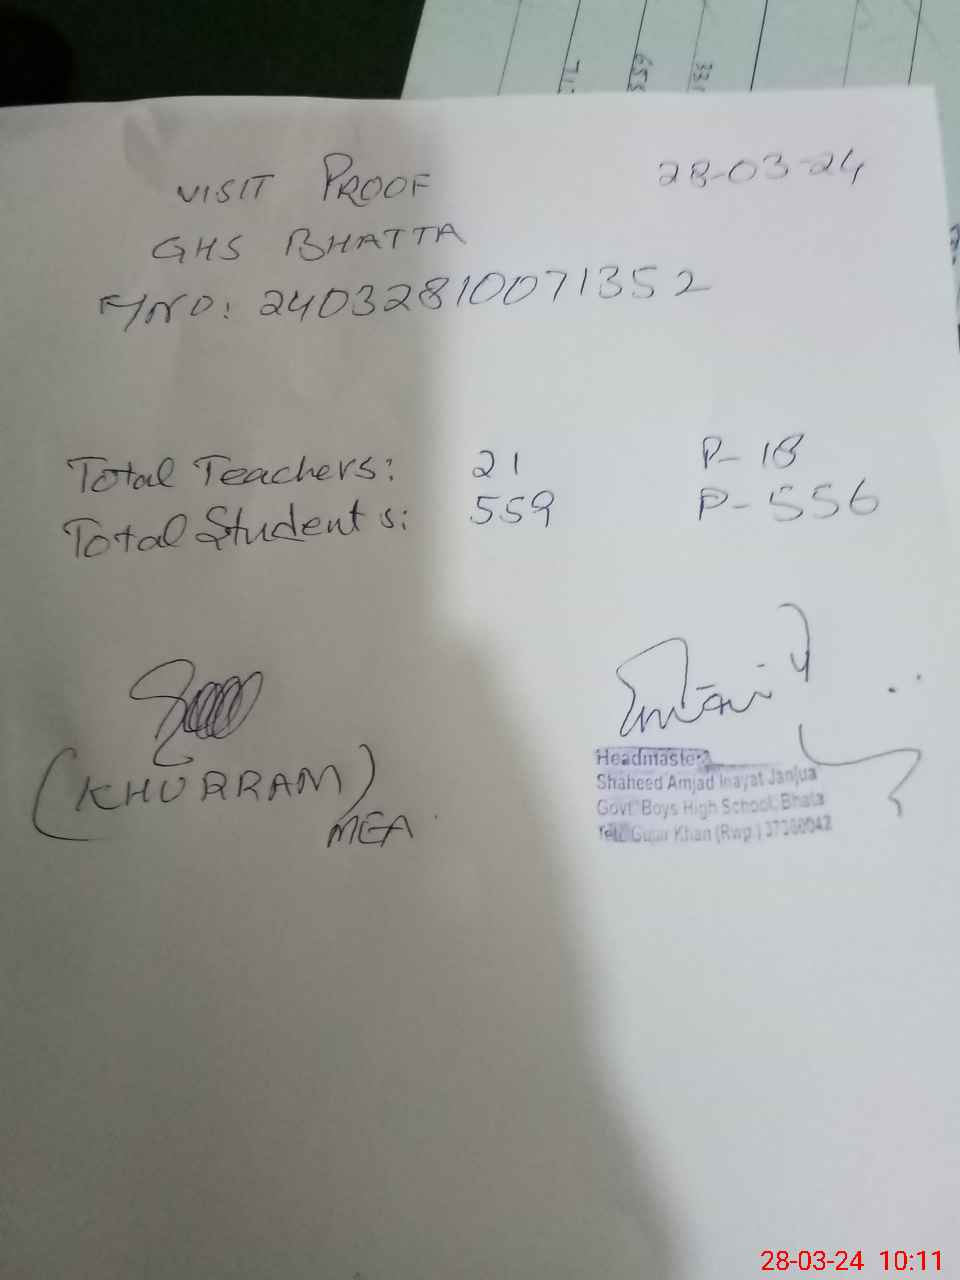 VISIT PROOF 28-03-24
GHS BHATTA
F/NO: 24032810071352
Total Teachers: 21 P-18
Total Students: 559 P-556
(KHURRAM)
MEA
Headmaster
Shaheed Amjad Inayat Janjua
Govt. Boys High School, Bhata
Teh. Gujar Khan (Rwp.)
28-03-24 10:11